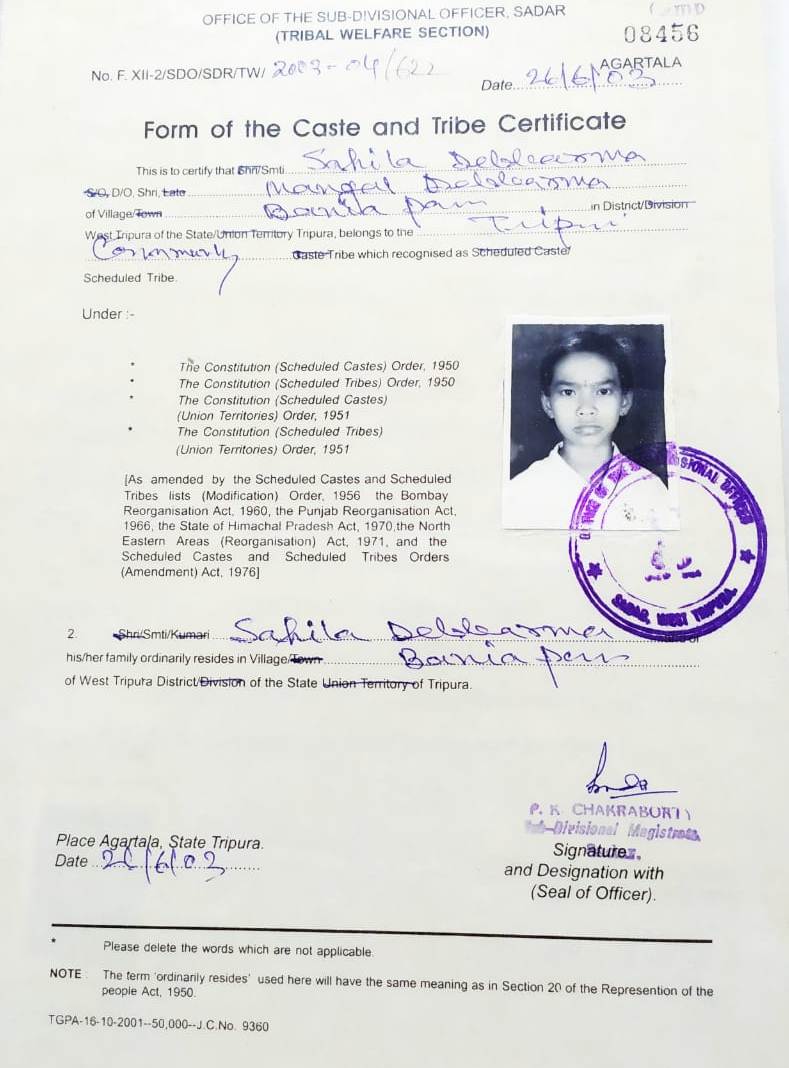 OFFICE OF THE SUB-DIVISIONAL OFFICER, SADAR
(TRIBAL WELFARE SECTION)
08456
No. F. XII-2/SDO/SDR/TW/ 2003-04/622
AGARTALA
Date 26/6/03
Form of the Caste and Tribe Certificate
This is to certify that Shri/Smti Sahila Debbarma
S/O, D/O, Shri, Late Mangal Debbarma
of Village/Town Bania para in District/Division
West Tripura of the State/Union Territory Tripura, belongs to the Tripuri
Community Caste Tribe which recognised as Scheduled Caste/
Scheduled Tribe.
Under :-
* The Constitution (Scheduled Castes) Order, 1950
* The Constitution (Scheduled Tribes) Order, 1950
* The Constitution (Scheduled Castes)
(Union Territories) Order, 1951
* The Constitution (Scheduled Tribes)
(Union Territories) Order, 1951
[As amended by the Scheduled Castes and Scheduled
Tribes lists (Modification) Order, 1956 the Bombay
Reorganisation Act, 1960, the Punjab Reorganisation Act,
1966, the State of Himachal Pradesh Act, 1970,the North
Eastern Areas (Reorganisation) Act, 1971, and the
Scheduled Castes and Scheduled Tribes Orders
(Amendment) Act, 1976]
OFFICE OF THE SUB-DIVISIONAL OFFICER
SADAR, WEST TRIPURA.
2. Shri/Smti/Kumari Sahila Debbarma
his/her family ordinarily resides in Village/Town Bania para
of West Tripura District/Division of the State Union Territory of Tripura.
P. K. CHAKRABORTY
Sub-Divisional Magistrate,
Place Agartala, State Tripura.
Signature
Date 26/6/03
and Designation with
(Seal of Officer).
* Please delete the words which are not applicable.
NOTE : The term 'ordinarily resides' used here will have the same meaning as in Section 20 of the Represention of the
people Act, 1950.
TGPA-16-10-2001--50,000--J.C.No. 9360